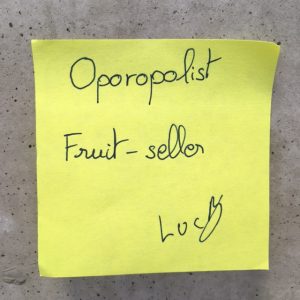 Oporopolist
Fruit-seller